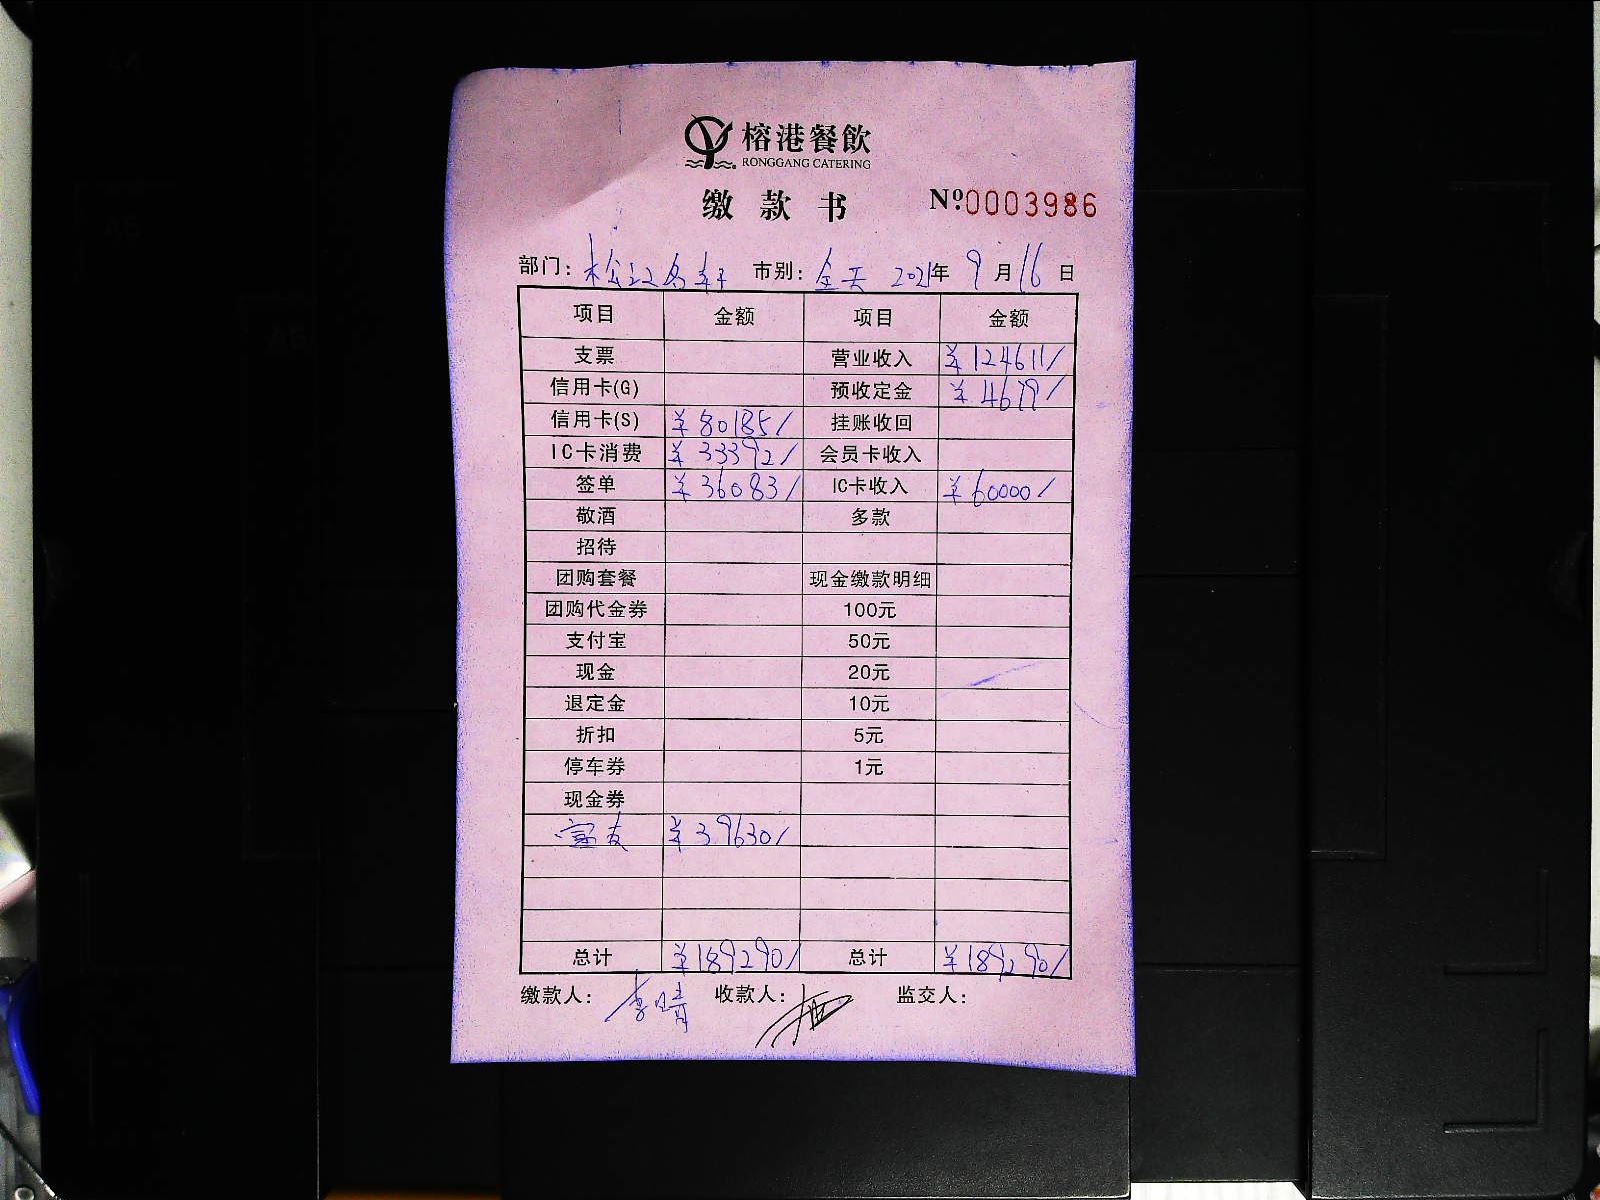 榕港餐飲
RONGGANG CATERING
缴款书 Nº0003986
部门: 松江名轩 市别: 全天 2021年 9月16日
项目 金额 项目 金额
支票 营业收入 ¥124611/
信用卡(G) 预收定金 ¥4679/
信用卡(S) ¥80185/ 挂账收回
IC卡消费 ¥33392/ 会员卡收入
签单 ¥36083/ IC卡收入 ¥60000/
敬酒 多款
招待
团购套餐 现金缴款明细
团购代金券 100元
支付宝 50元
现金 20元
退定金 10元
折扣 5元
停车券 1元
现金券
富友 ¥39630/
总计 ¥189290/ 总计 ¥189290/
缴款人: 李晴 收款人: 监交人: